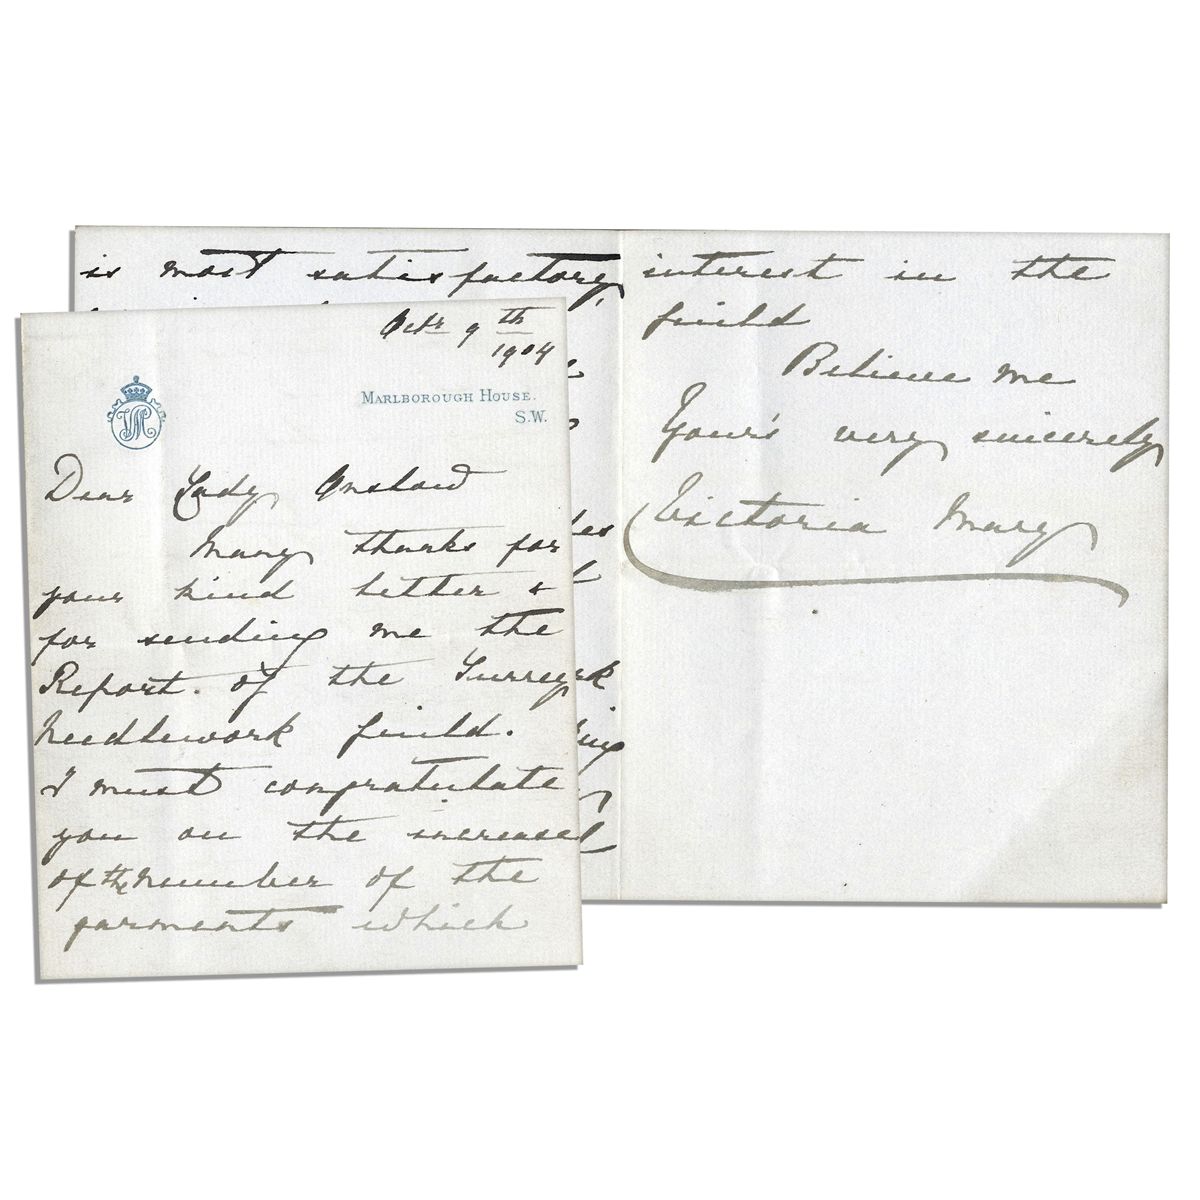 Octr 9th
1904
VM
MARLBOROUGH HOUSE.
S.W.
Dear Lady Onslow
Many thanks for
your kind letter &
for sending me the
Report. of the Surrey
Needlework Guild.
I must congratulate
you on the increased
of the number of the
garments which
is most satisfactory,
interest in the
Guild
Believe me
Your's very sincerely
Victoria Mary